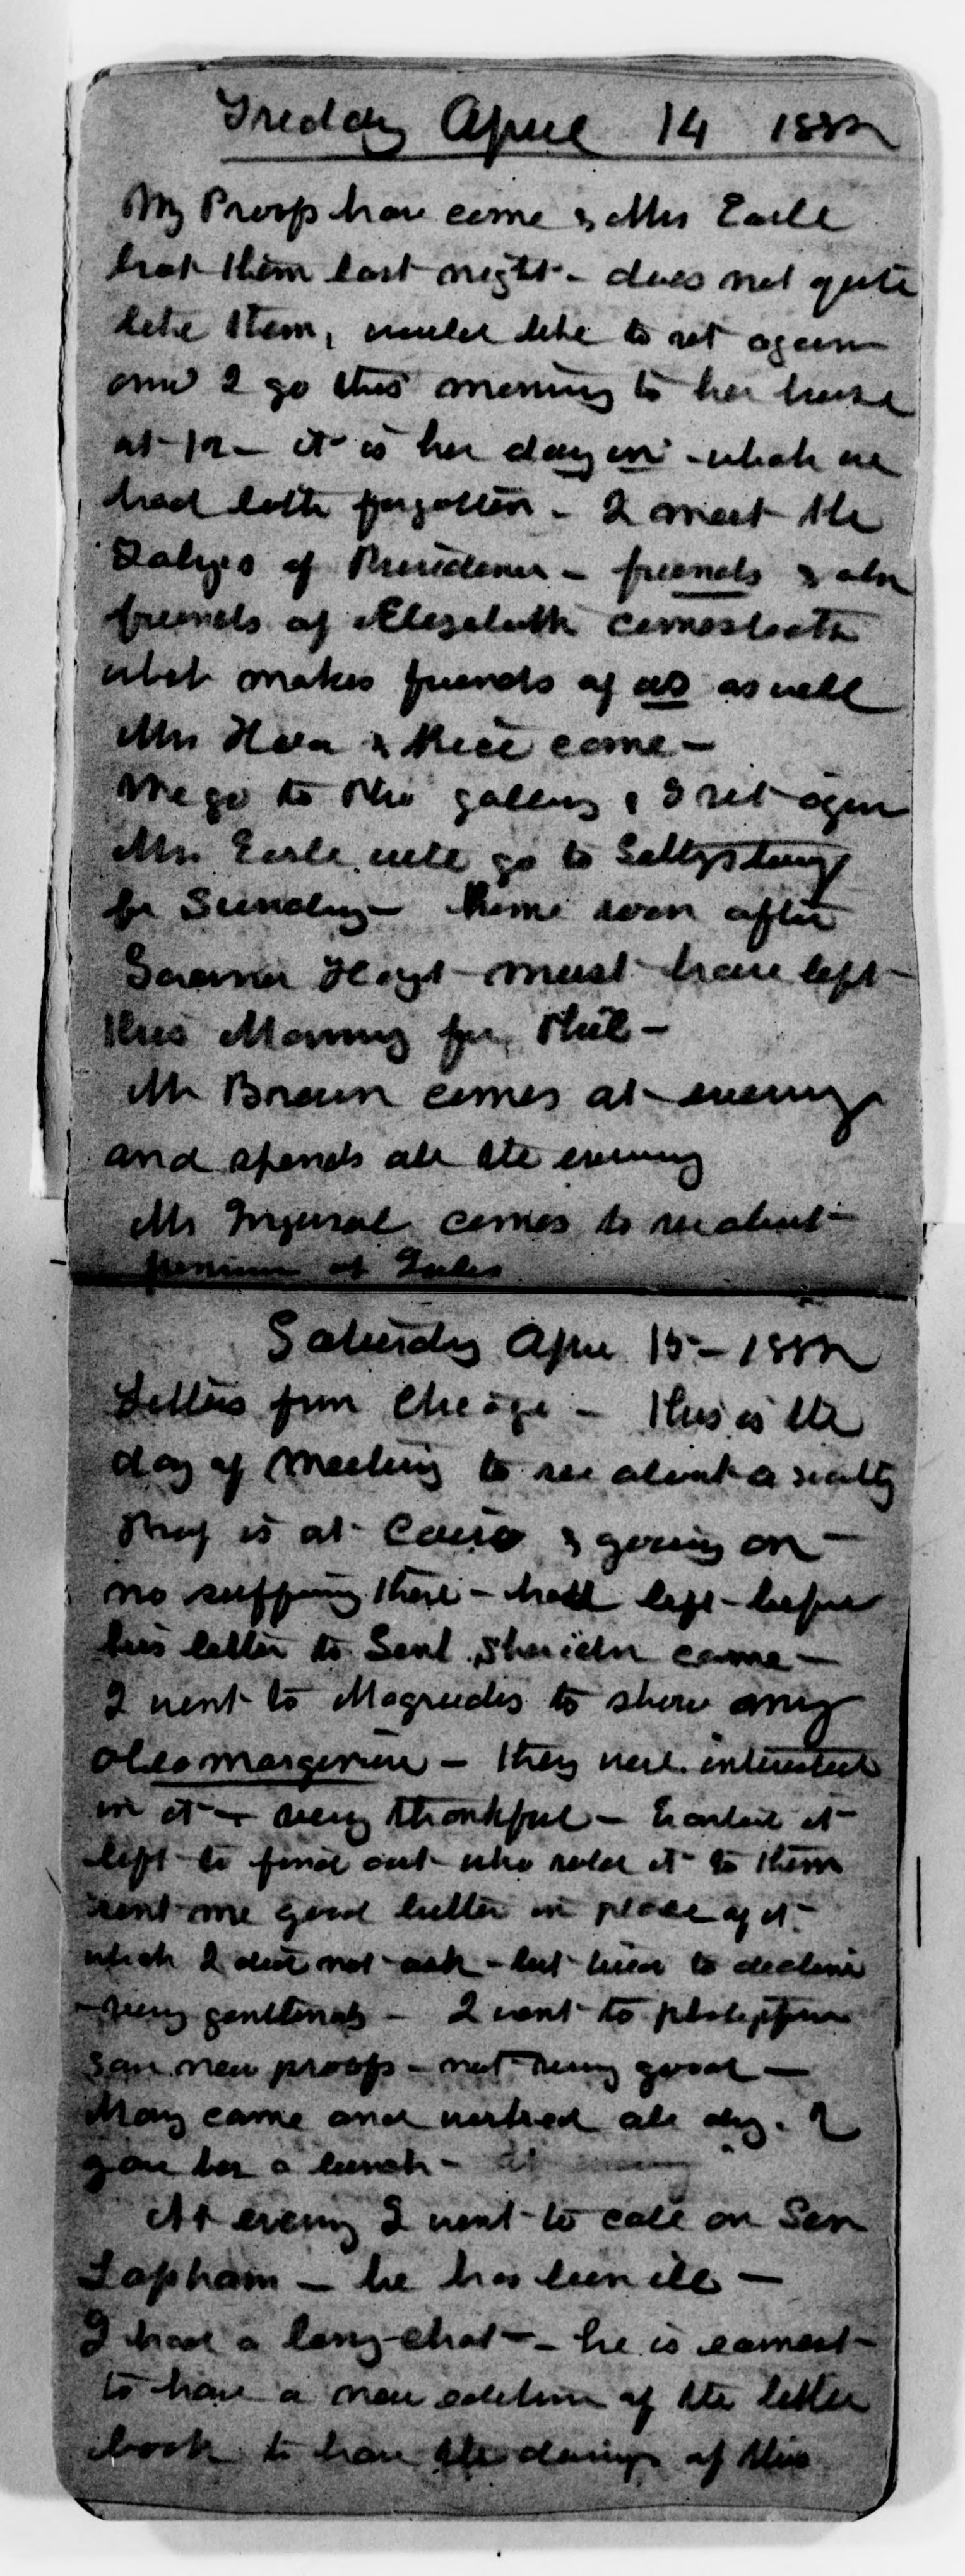 Friday April 14 1882
My Proofs have come & Mrs Earle
had them last night - does not quite
like them, would like to set again
and I go this morning to her house
at 12 - it is her day in - which we
had both forgotten - I meet the
of Providence - friends & also
friends of Elizabeth Comestock
what makes friends of us as well
Mrs Hoa & Niece come -
We go to the gallery & I set again
Mrs Earle will go to Gettysburg
for Sunday - home soon after
Governor Hoyt must have left
this Morning for Phil -
Mr Brown comes at evening
and spends all the evening
Mr Ingersol comes to see about
pension of
Saturday April 15 - 1882
Letters from Chicago - This is the
day of Meeting to see about a society
Prof is at Cairo & going on -
no suffering there - had left before
his letter to Genl Sheridan came -
I went to Magruders to show my
oleo margerine - they were interested
in it - very thankful - wanted it
left to find out who sold it to them
sent me good butter in place of it -
which I did not ask - but tried to decline
- very gentlemanly - I went to
saw new proofs - not very good -
Mary came and worked all day. I
gave her a lunch -
At evening I went to call on Sen
Lapham - he has been ill -
I had a long chat - he is earnest
to have a new edition of the letter
book to have the doings of this